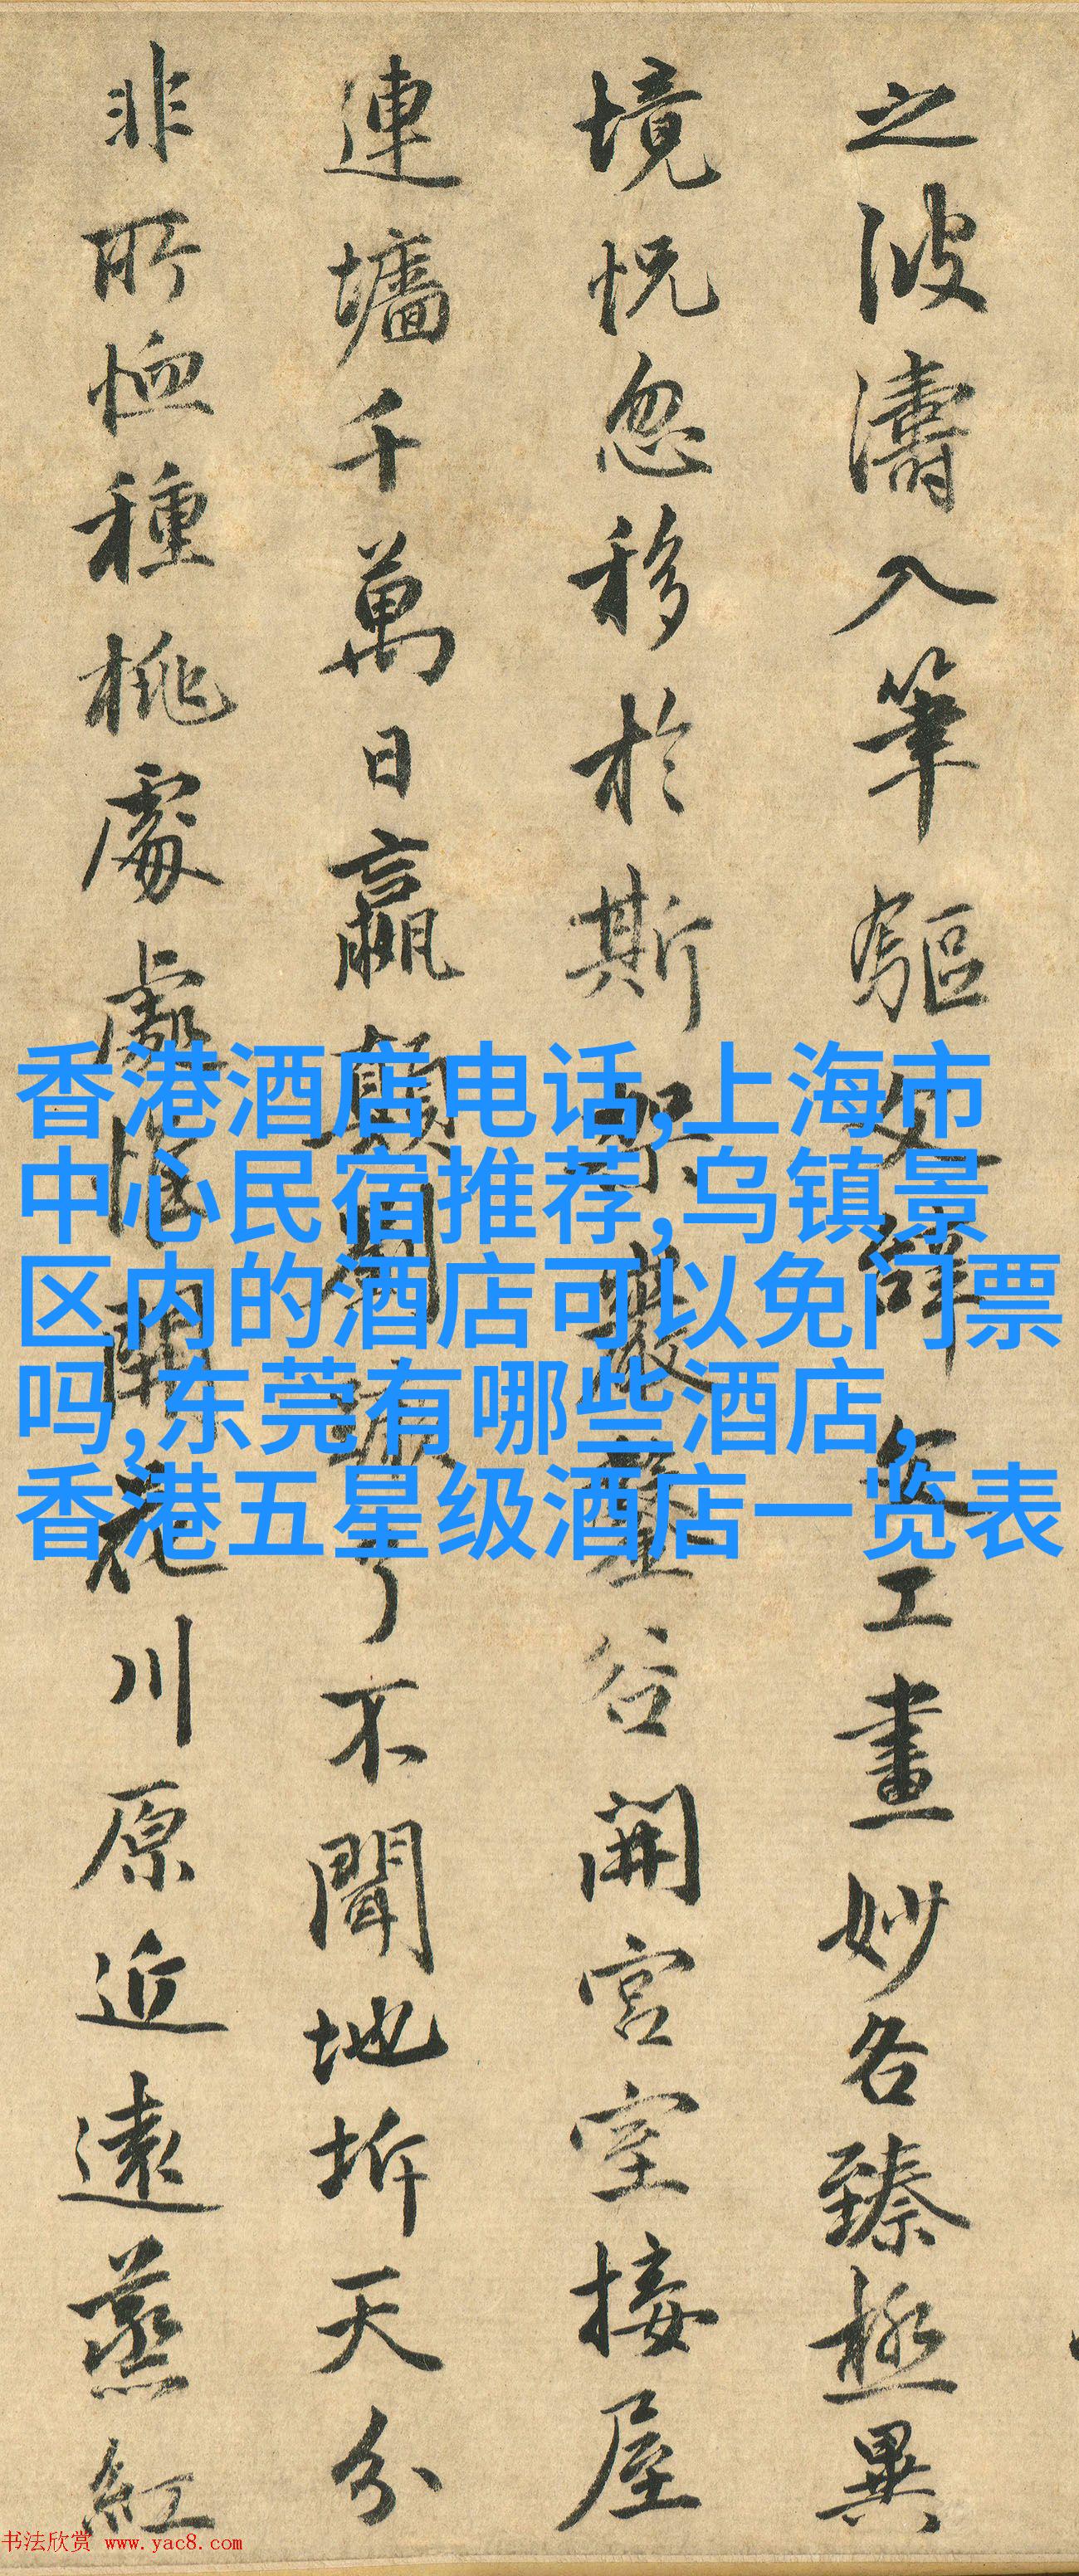 之波濤入筆驅文辭文工畫妙各臻極異
境怳忽移於斯架巖鑿谷開宮室接屋
連墻千萬日嬴顛劉蹶了不聞地坼天分
非所恤種桃處處惟開花川原近遠蒸紅
香港酒店电话,上海市
中心民宿推荐,乌镇景
区内的酒店可以免门票
吗,东莞有哪些酒店,
香港五星级酒店一览表
书法欣赏 www.yac8.com